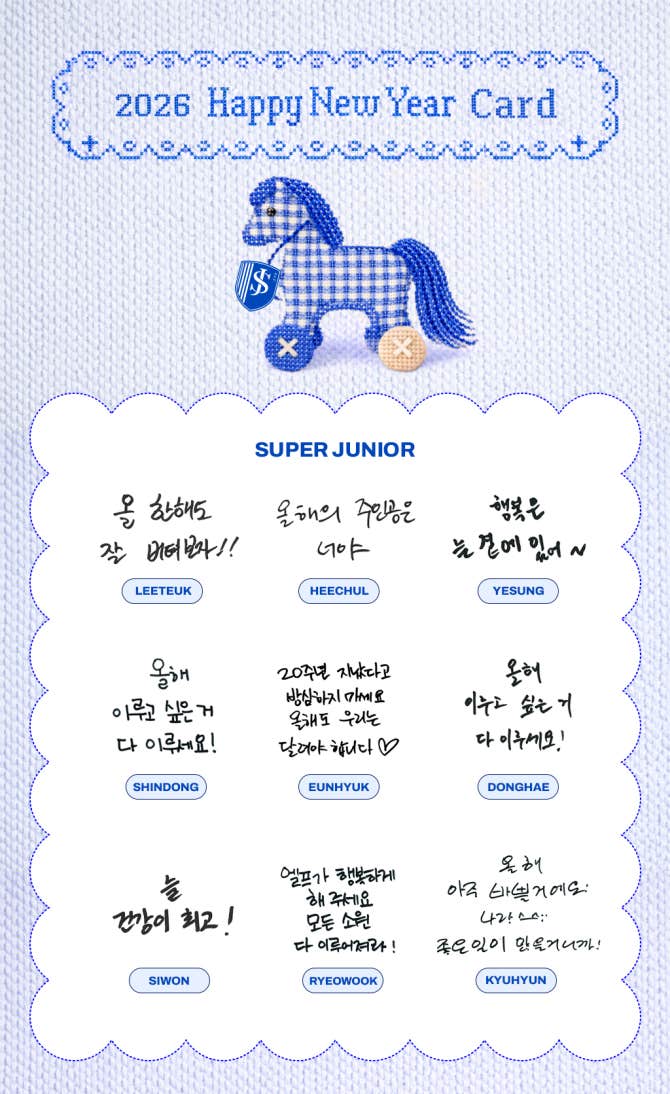 2026 Happy New Year Card
SJ
SUPER JUNIOR
올 한해도
잘 버텨보자!!
LEETEUK
올해의 주인공은
너야
HEECHUL
행복은
늘 곁에 있어 ~
YESUNG
올해
이루고 싶은거
다 이루세요!
SHINDONG
20주년 지났다고
방심하지 마세요
올해도 우리는
달려야 합니다 ♡
EUNHYUK
올해
이루고 싶은 거
다 이루세요!
DONGHAE
늘
건강이 최고!
SIWON
엘프가 행복하게
해 주세요
모든 소원
다 이루어져라!
RYEOWOOK
올해
아주 바쁠거에요
좋은일이 많을거니까!
KYUHYUN